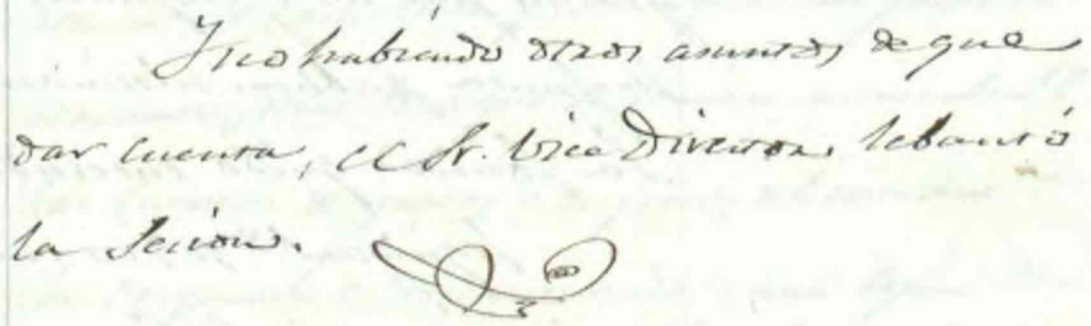 Y no habiendo otros asuntos de que
dar cuenta, el Sr. Vice Director lebantó
la Sesion.